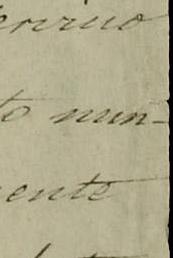 ervino
to nun-
ente